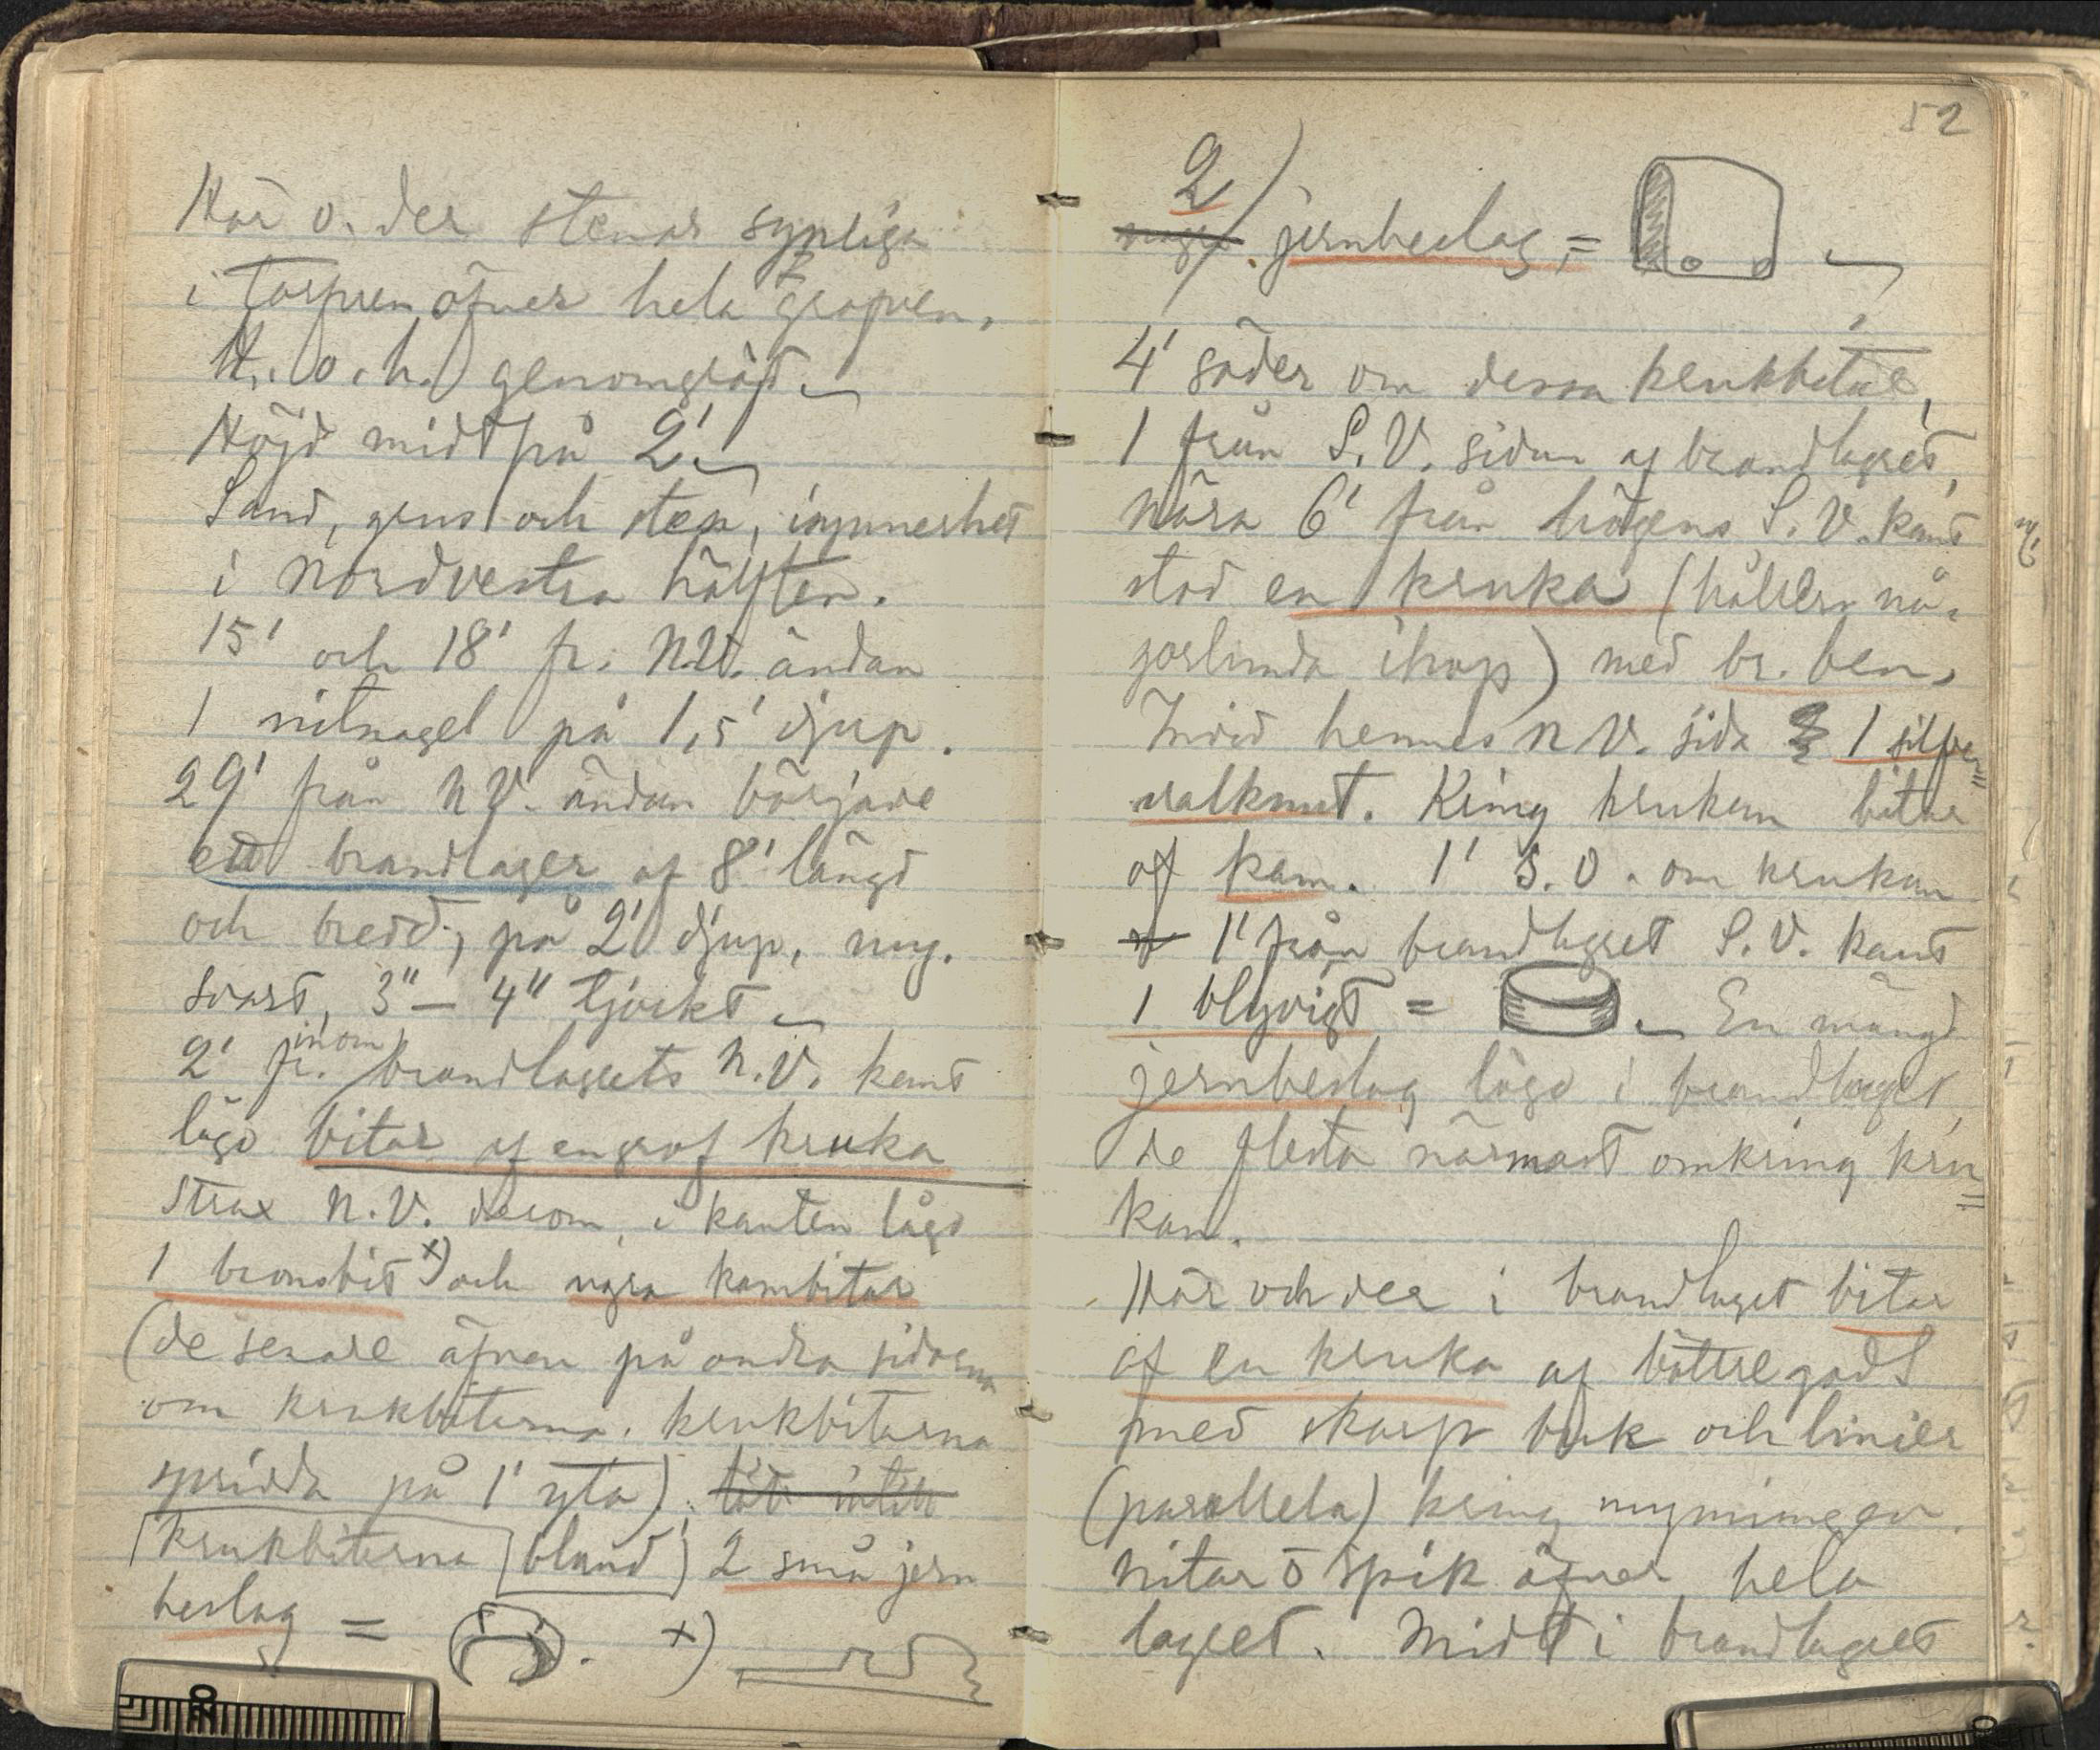 Här o. der stenar synliga
i torfven öfver hela gropen.
H. o. h. genomgräfd
Höjd midt på 2'
Sand, grus och sten, synnerhet
i nordvestra hälften.
15' och 18' fr. N.V. ändan
1 nitnagel på 1,5' djup.
29' från N.V. ändan började
ett brandlager af 8' längd
och bredd, på 2' djup, myc.
svart, 3" – 4" tjockt
2' fr. inom brandlagrets N.V. kant
lågo bitar af en grof kruka
Strax N.V. derom, i kanten lågo
1 bronsbit x) och några kambitar
(de senare äfven på andra sidorna
om krukbitarna. krukbitarna
spridda på 1' yta).
krukbitarna bland 2 små jern
beslag = . x)
52
2)
några jernbeslag =
4' söder om dessa krukbitar,
1' från S.V. sidan af brandlagret,
nära 6' från högens S.V. kant
stod en kruka (håller nå-
gorlunda ihop) med br. ben.
Invid hennes N.V. sida 1 silfver=
valknut. Kring krukan bitar
af kam. 1' S.V. om krukan
1' från brandlagret S.V. kant
1 blyvigt = En mängd
jernbeslag lågo i brandlagret,
de flesta närmast omkring kru=
kan.
Här och der i brandlagret bitar
af en kruka af bättre gods
med skarp buk och linier
(parallela) kring mynningen.
Nitar o spik öfver hela
lagret. Midt i brandlagret